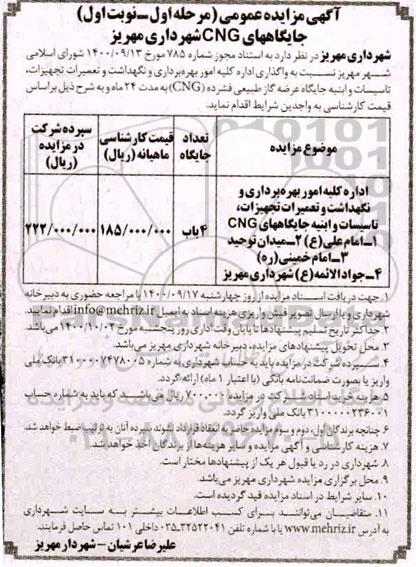 آگهی مزایده عمومی (مرحله اول ـ نوبت اول)
جایگاههای CNG شهرداری مهریز
شهرداری مهریز در نظر دارد به استناد مجوز شماره ۷۸۵ مورخ ۱۴۰۰/۰۹/۱۳ شورای اسلامی
شهر مهریز نسبت به واگذاری اداره کلیه امور بهره‌برداری و نگهداشت و تعمیرات تجهیزات،
تاسیسات و ابنیه جایگاه عرضه گاز طبیعی فشرده (CNG) به مدت ۲۴ ماه و به شرح ذیل براساس
قیمت کارشناسی به واجدین شرایط اقدام نماید.
موضوع مزایده
تعداد جایگاه
قیمت کارشناسی ماهیانه (ریال)
سپرده شرکت در مزایده (ریال)
اداره کلیه امور بهره‌برداری و
نگهداشت و تعمیرات تجهیزات،
تاسیسات و ابنیه جایگاههای CNG
۱ـ امام علی (ع) ۲ـ میدان توحید
۳ـ امام خمینی (ره)
۴ـ جواد الائمه (ع) شهرداری مهریز
۴ باب
۱۸۵/۰۰۰/۰۰۰
۲۲۲/۰۰۰/۰۰۰
۱. جهت دریافت اسناد مزایده از روز چهارشنبه ۱۴۰۰/۰۹/۱۷ با مراجعه حضوری به دبیرخانه
شهرداری و یا ارسال تصویر فیش واریزی هزینه اسناد به ایمیل info@mehriz.ir اقدام نمایند.
۲. حداکثر تاریخ تسلیم پیشنهادها تا پایان وقت اداری روز پنجشنبه مورخ ۱۴۰۰/۱۰/۰۲ می‌باشد.
۳. محل تحویل پیشنهادهای مزایده، دبیرخانه شهرداری مهریز می‌باشد.
۴. سپرده شرکت در مزایده باید به حساب شهرداری به شماره ۳۱۰۰۰۰۷۴۷۸۰۰۵ بانک ملی
واریز یا بصورت ضمانت‌نامه بانکی (با اعتبار ۱ ماه) ارائه گردد.
۵. هزینه خرید اسناد شرکت در مزایده ۷۰۰/۰۰۰ ریال می‌باشد که باید به شماره حساب
بانک ملی واریز گردد.
۶. چنانچه برندگان اول، دوم و سوم مزایده حاضر به انعقاد قرارداد نشوند سپرده آنان به ترتیب ضبط خواهد شد.
۷. هزینه کارشناسی و آگهی مزایده و سایر هزینه‌ها از برندگان اخذ خواهد شد.
۸. شهرداری در رد یا قبول هر یک از پیشنهادها مختار است.
۹. محل برگزاری مزایده شهرداری مهریز می‌باشد.
۱۰. سایر شرایط در اسناد مزایده قید گردیده است.
۱۱. متقاضیان می‌توانند برای کسب اطلاعات بیشتر به سایت شهرداری
به آدرس www.mehriz.ir یا با شماره تلفن ۰۳۵-۳۲۵۲۲۰۴۱ داخلی ۱۰۱ تماس حاصل فرمایند.
علیرضا عرشیان - شهردار مهریز